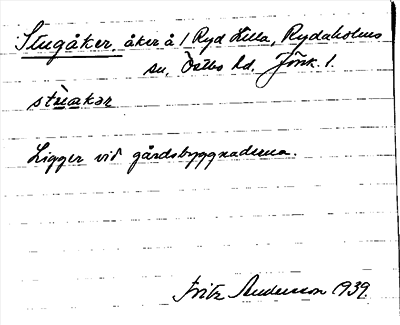 Stugåker, åker å 1 Ryd Lilla, Rydaholms
sn, Östbo hd, Jönk. l.
stùakər
Ligger vid gårdsbyggnaderna.
Fritz Andersson 1939.